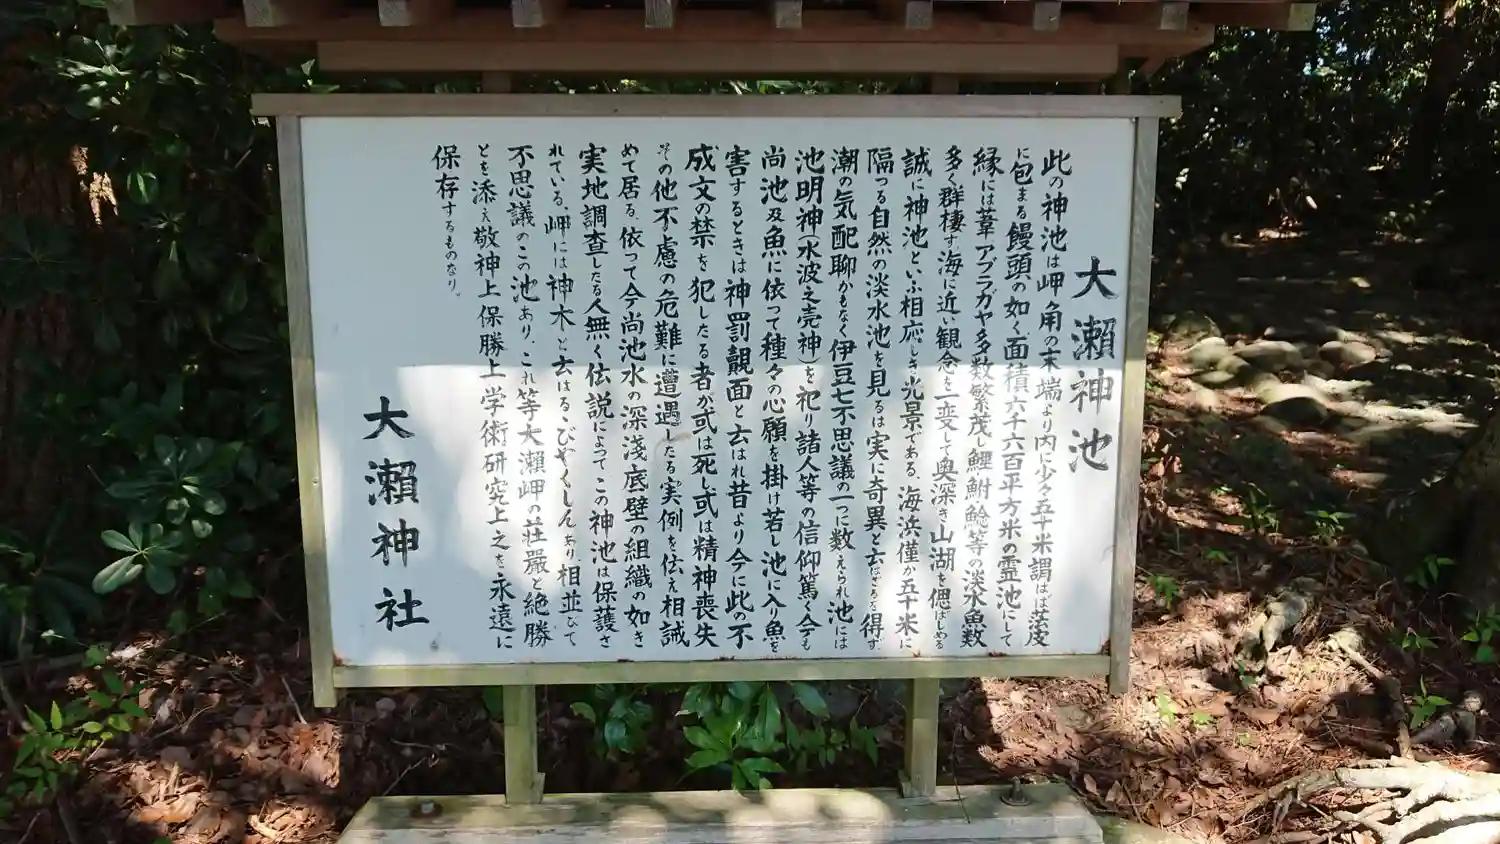 大瀬神池
此の神池は岬角の末端より内に少々五十米謂はば茫度
に包まる饅頭の如く、面積六千六百平方米の霊池にして
縁には葦アブラガヤ多数繁茂し鯉鮒鯰等の淡水魚数
多く群棲す海に近い観念を一変して奥深き山湖を偲ばしめる
誠に神池といふ相応しき光景である、海浜僅か五十米に
隔つる自然の淡水池を見るは実に奇異と云はざるを得ず、
潮の気配聊かもなく伊豆七不思議の一つに数へられ池には
池明神(水波之売神)を祀り諸人等の信仰篤く今も
尚池及魚に依って種々の心願を掛け若し池に入り魚を
害するときは神罰覿面と云はれ昔より今に此の不
成文の禁を犯したる者が或は死し或は精神喪失
その他不慮の危難に遭遇したる実例を伝え相誡
めて居る、依って今尚池水の深淺底壁の組織の如き
実地調査したる人無く伝説によって、この神池は保護さ
れている、岬には神木と云はるゝびゃくしんあり、相並びて
不思議のこの池あり、これ等大瀬岬の荘嚴と絶勝
とを添え敬神上保勝上学術研究上之を永遠に
保存するものなり。
大瀬神社